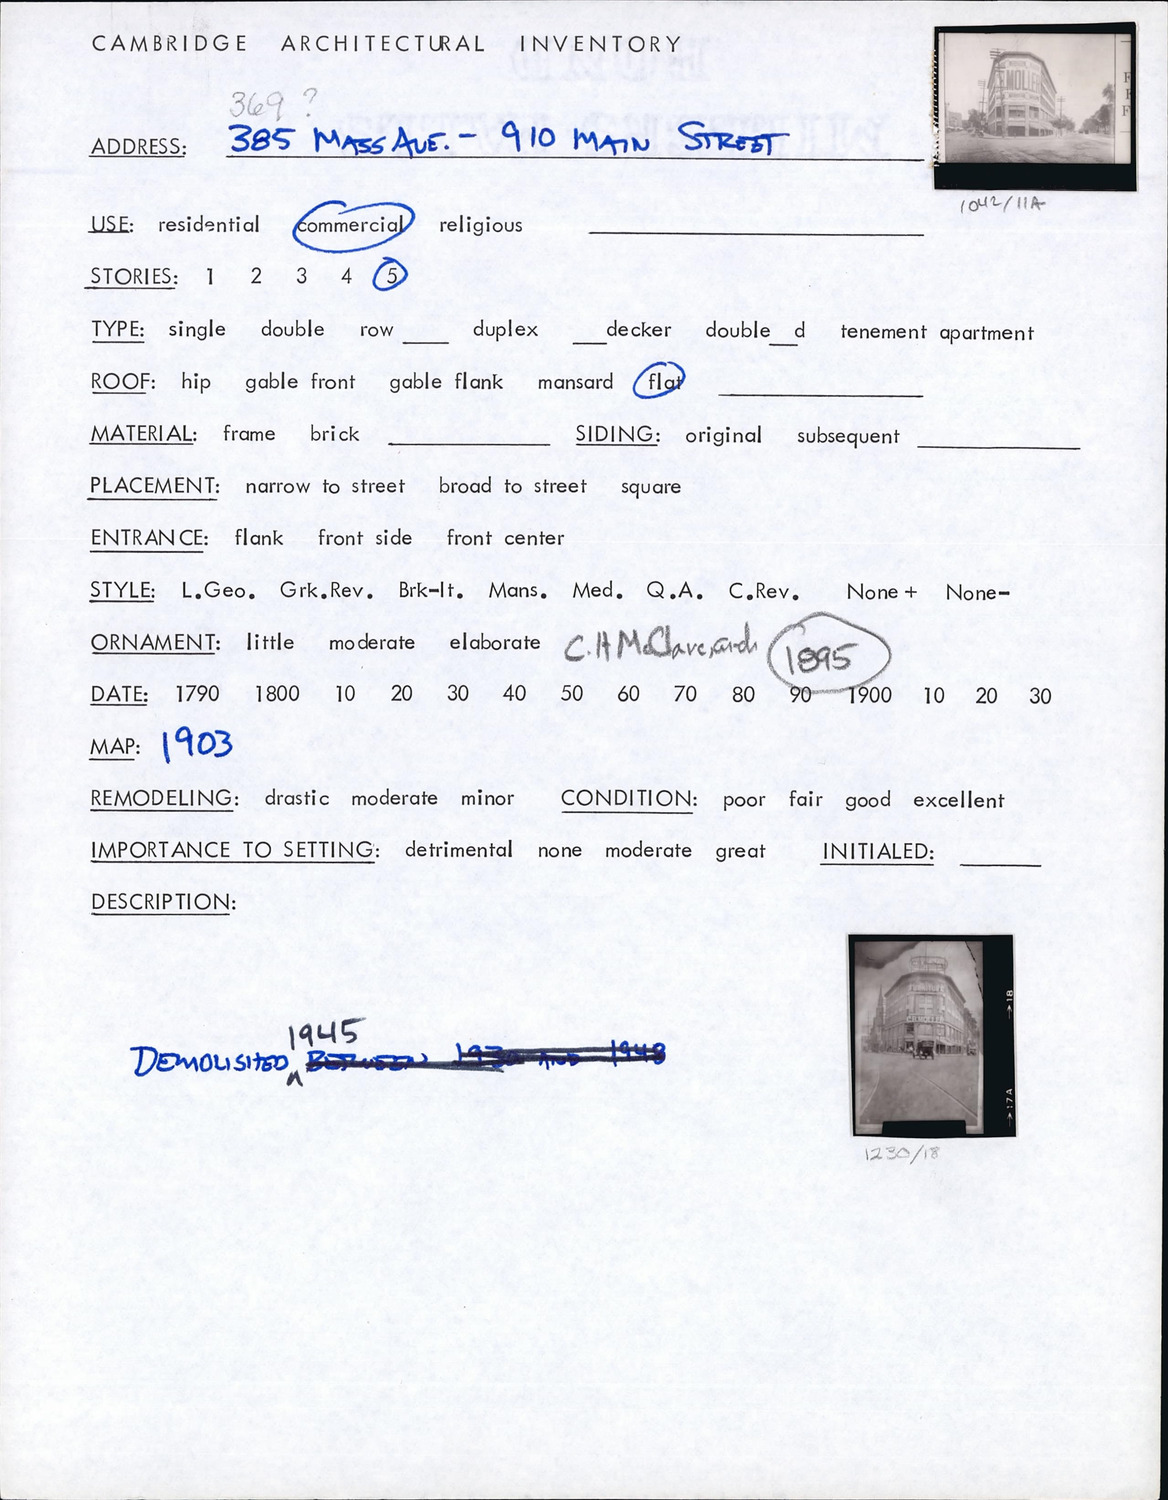 CAMBRIDGE ARCHITECTURAL INVENTORY
369 ?
ADDRESS: 385 MASS AVE. - 910 MAIN STREET
1042/11A
USE: residential commercial religious
STORIES: 1 2 3 4 5
TYPE: single double row ___ duplex ___decker double__d tenement apartment
ROOF: hip gable front gable flank mansard flat
MATERIAL: frame brick ___ SIDING: original subsequent ___
PLACEMENT: narrow to street broad to street square
ENTRANCE: flank front side front center
STYLE: L.Geo. Grk.Rev. Brk-It. Mans. Med. Q.A. C.Rev. None+ None-
ORNAMENT: little moderate elaborate C.H McClare, arch 1895
DATE: 1790 1800 10 20 30 40 50 60 70 80 90 1900 10 20 30
MAP: 1903
REMODELING: drastic moderate minor CONDITION: poor fair good excellent
IMPORTANCE TO SETTING: detrimental none moderate great INITIALED: ___
DESCRIPTION:
1945
DEMOLISHED BETWEEN 1930 AND 1948
→18
→17A
1230/18